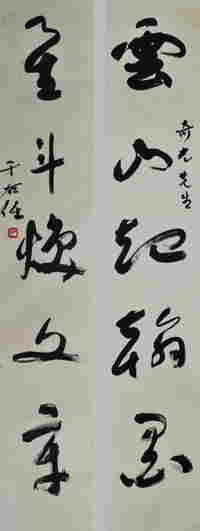 雲山起翰墨
奇尤先生
星斗煥文章
于右任